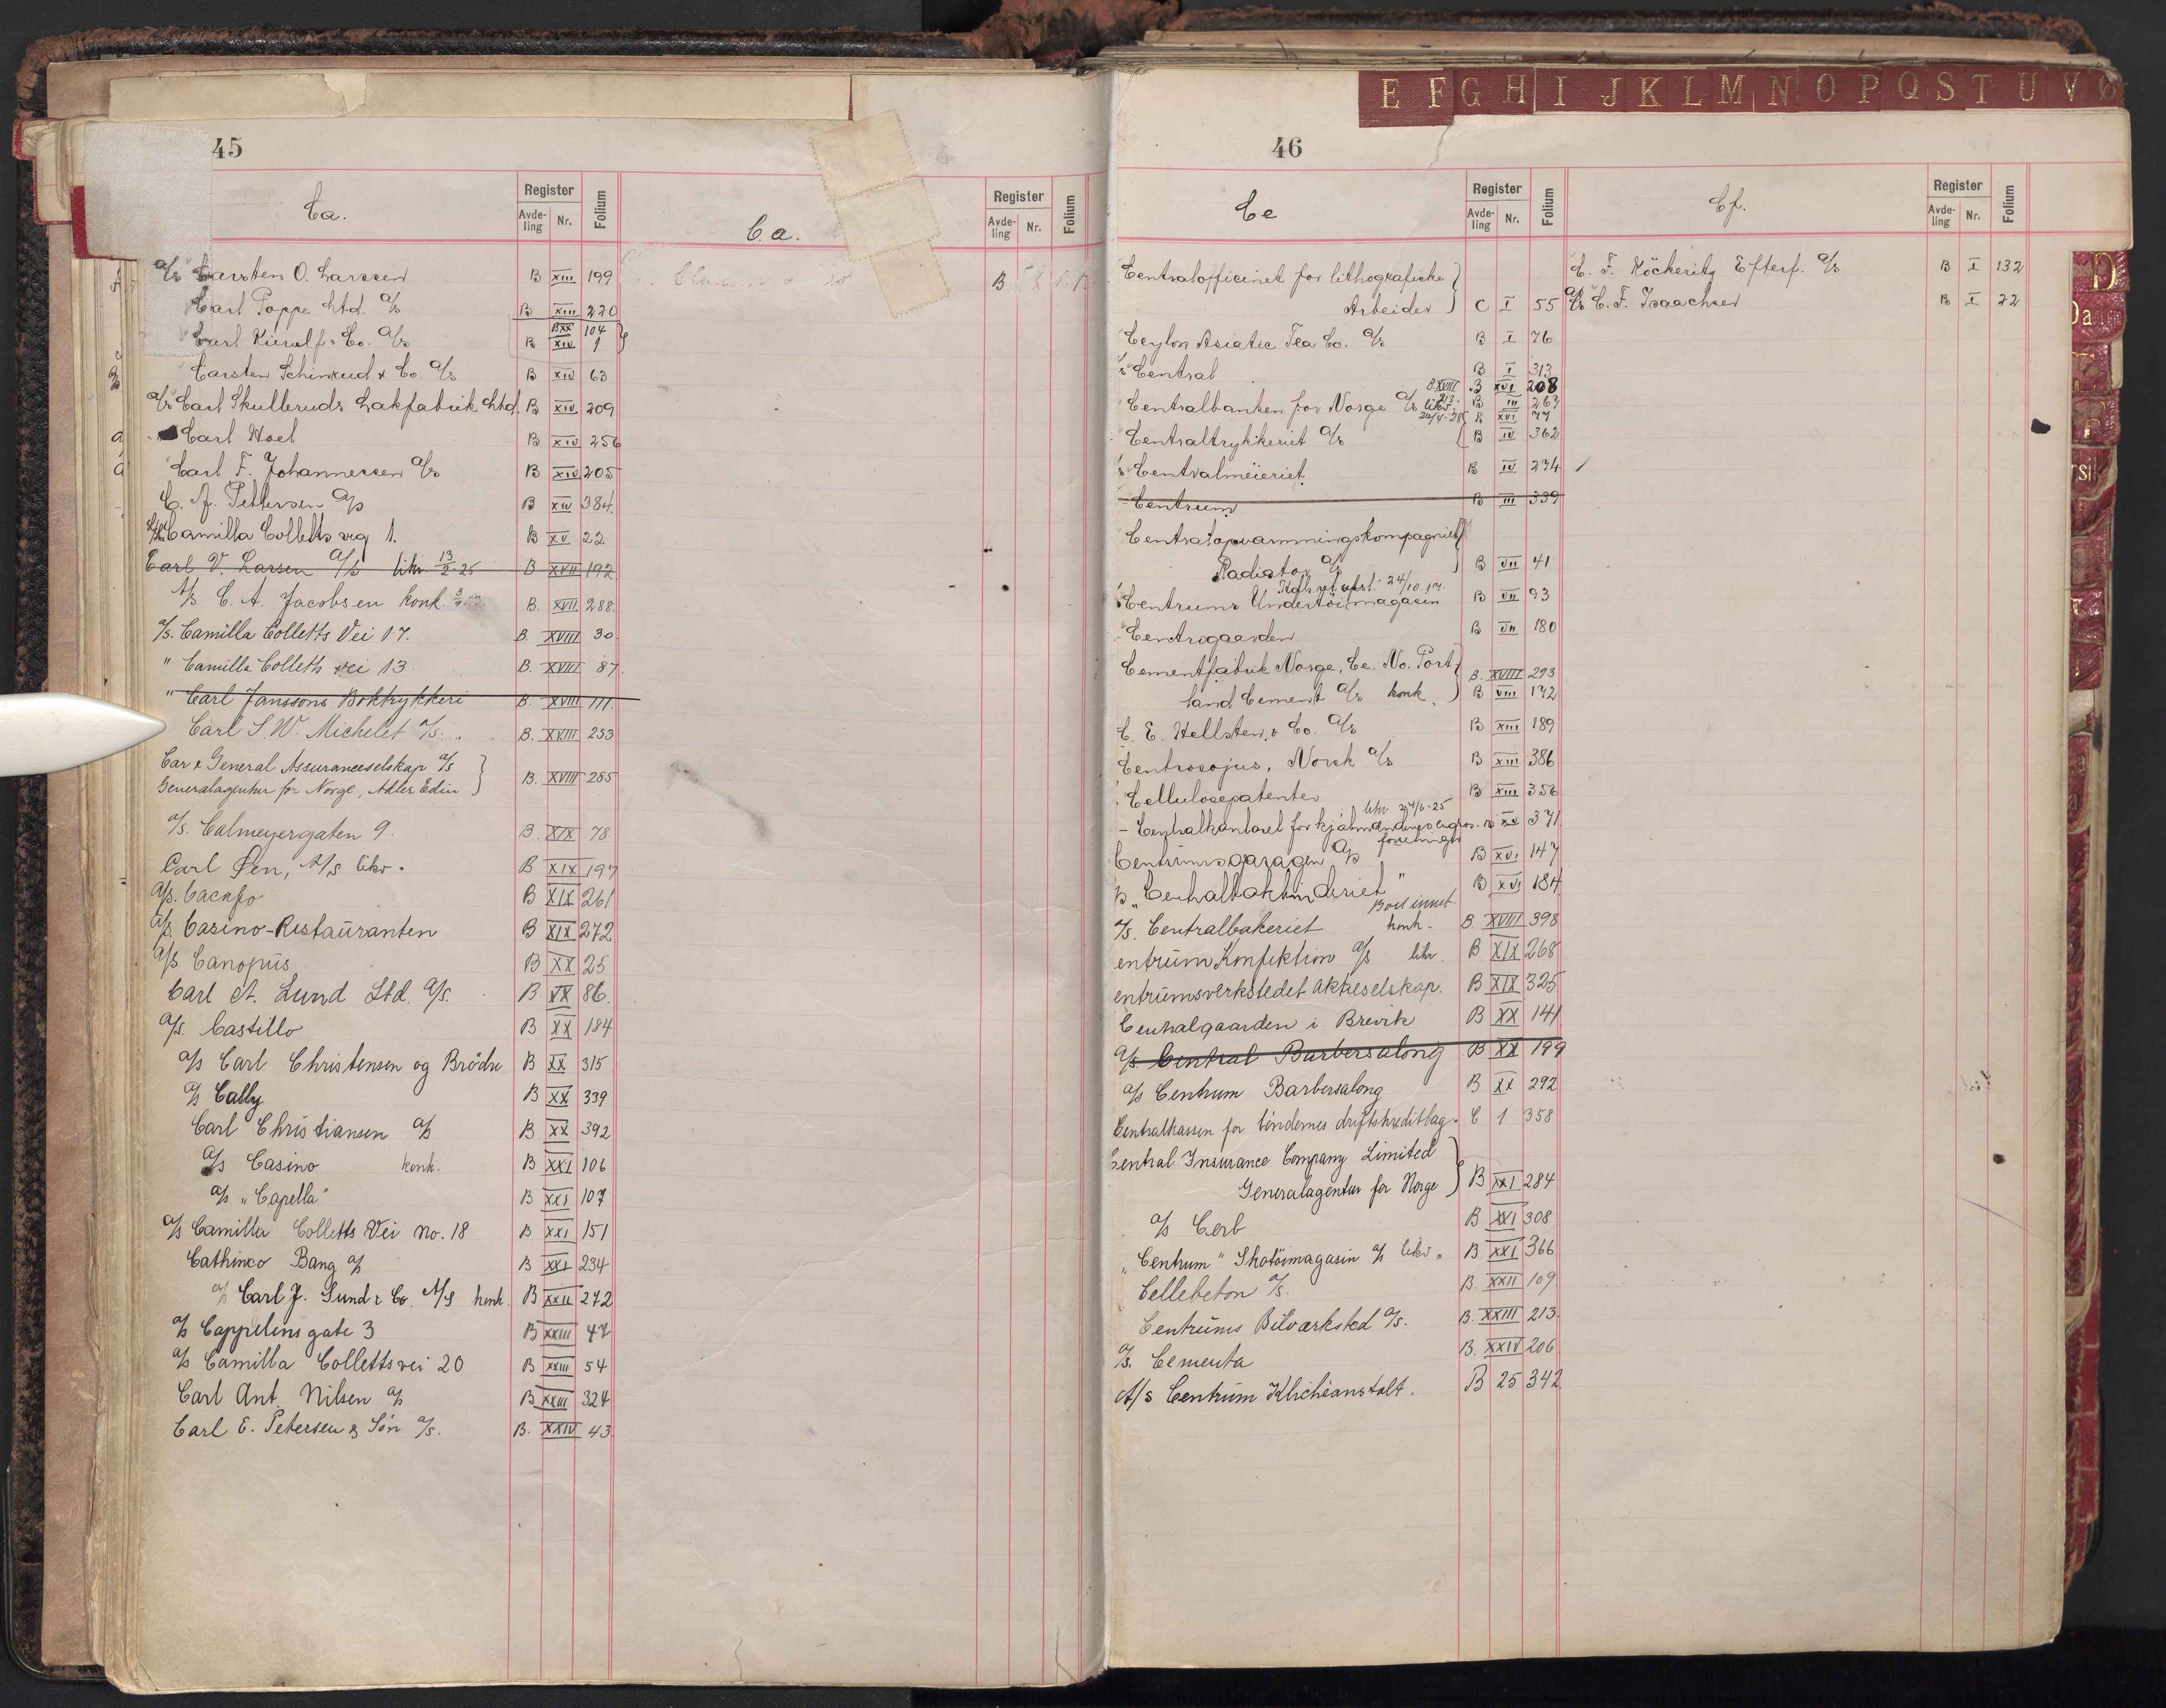 E F G H I J K L M N O P Q S T U V Ø
45
Ca.
Register
Avde-
ling
Nr.
Folium
A/s Carsten O. Larssen B XIII 199
Carl Poppe Ltd. A/s B XIII 220
BXX 104
Carl Kierulf & Co. A/s B XIV 1
Carsten Schinrud & Co. A/s B XIV 63
A/s Carl Skulleruds Lakfabrik Ltd. B XIV 209
Carl Hoel B XIV 256
Carl F. Johannessen A/s B XIV 205
C. A. Pettersen A/s B XIV 384.
Camilla Colletts veg 1. B XV 22
Carl V. Larsen A/s likv. 13/2-25 B XVII 192
A/s C. A. Jacobsen konk. B. XVII 288.
A/s. Camilla Colletts Vei 17. B. XVIII 30
" Camilla Colletts vei 13. B. XVIII 87.
" Carl Janssons Boktrykkeri B. XVIII 111
Carl S. W. Michelet A/s. B. XVIII 253
Car & General Assuranceselskap A/s
Generalagentur for Norge, Adler Edin B. XVIII 285
A/s. Calmeyergaten 9. B. XIX 78
Carl Øen, A/s likv. B XIX 197
A/s. Cacafo B XIX 261
A/s. Casino-Restauranten B XIX 272
A/s Canopus B XX 25
Carl A. Lund Ltd. A/s. B XX 86.
A/s. Castillo B XX 184
A/s Carl Christensen og Brödre B XX 315
A/s Cally B XX 339
Carl Christiansen A/s B XX 392
A/s Casino konk. B XXI 106
A/s "Capella" B XXI 107
A/s Camilla Colletts Vei No. 18 B XXI 151
Cathinco Bang A/s B XXI 234
A/s Carl J. Lund & Co. A/S konk. B XXII 272
A/s Cappelens gate 3 B XXIII 47
A/s Camilla Collettsvei 20 B XXIII 54
Carl Ant. Nilsen A/s B XXIII 324
Carl E. Petersen & Søn A/s. B. XXIV 43
Ca.
Register
Avde-
ling
Nr.
Folium
B
46
Ce
Register
Avde-
ling
Nr.
Folium
Centralofficinet for lithografiske
Arbeider C I 55
Ceylon Asiatic Tea Co. A/s B I 76
Central B I 313
B XVIII 213. B XVI 208
Centralbanken for Norge A/s likv. B III 267
24/4-28 B XVI 77
Centraltrykkeriet A/s B IV 362
Centralmeieriet. B IV 234
Centrum B III 339
Centralopvarmningskompagniet
Radiator A/s B VII 41
24/10.17.
Centrums Undertöimagasin B VII 93
Centrogaarden B VII 180
Cementfabrik Norge, Ce. No. Port- B. XVIII 293
land Cement A/s konk. B VIII 172
C. E. Hellsten & Co. A/s B XIII 189
Centrosojus, Norsk A/s B XIII 386
Cellulosepatenter B XIII 356
likv 24/6-25
Centralkontoret for kjøbmandsengros- B XV 371
forretninger
Centrumsgaragen A/s B XVI 147
B XVI 184
Boet innst.
A/s. Centralbakeriet konk. B. XVIII 398
entrum Konfektion A/s likv. B XIX 268
entrumsverkstedet Aktieselskap. B XIX 325
Centralgaarden i Brevik B XX 141
A/s. Central Barbersalong B XX 199
A/s Centrum Barbersalong B XX 292
Centralkassen for bøndernes driftskreditlag. C 1 358
Central Insurance Company Limited
Generalagentur for Norge B XXI 284
A/s Cerb B XXI 308
"Centrum" Skotöimagasin A/s likv. B XXI 366
Cellebeton A/s. B. XXII 109
Centrums Bilverksted A/s. B. XXIII 213.
A/s. Cementa B. XXIV 206
A/s Centrum Klichéanstalt. B 25 342
Cf.
Register
Avde-
ling
Nr.
Folium
C. F. Köckeritz Efterf. A/s B I 132
A/s C. F. Isaachsen B I 22
D